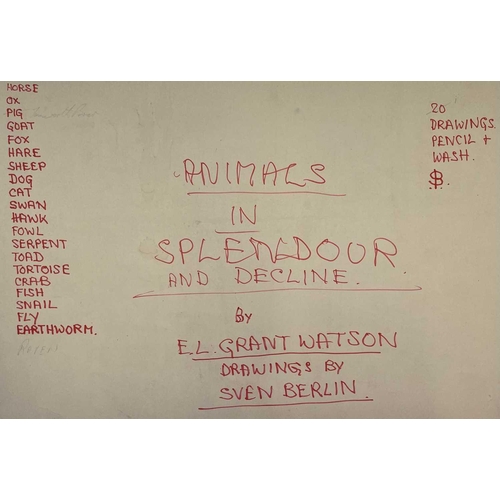 HORSE
OX
PIG
GOAT
FOX
HARE
SHEEP
DOG
CAT
SWAN
HAWK
FOWL
SERPENT
TOAD
TORTOISE
CRAB
FISH
SNAIL
FLY
EARTHWORM.
ANIMALS
IN
SPLENDOUR
AND DECLINE.
By
E.L. GRANT WATSON
DRAWINGS BY
SVEN BERLIN.
20
DRAWINGS.
PENCIL +
WASH.